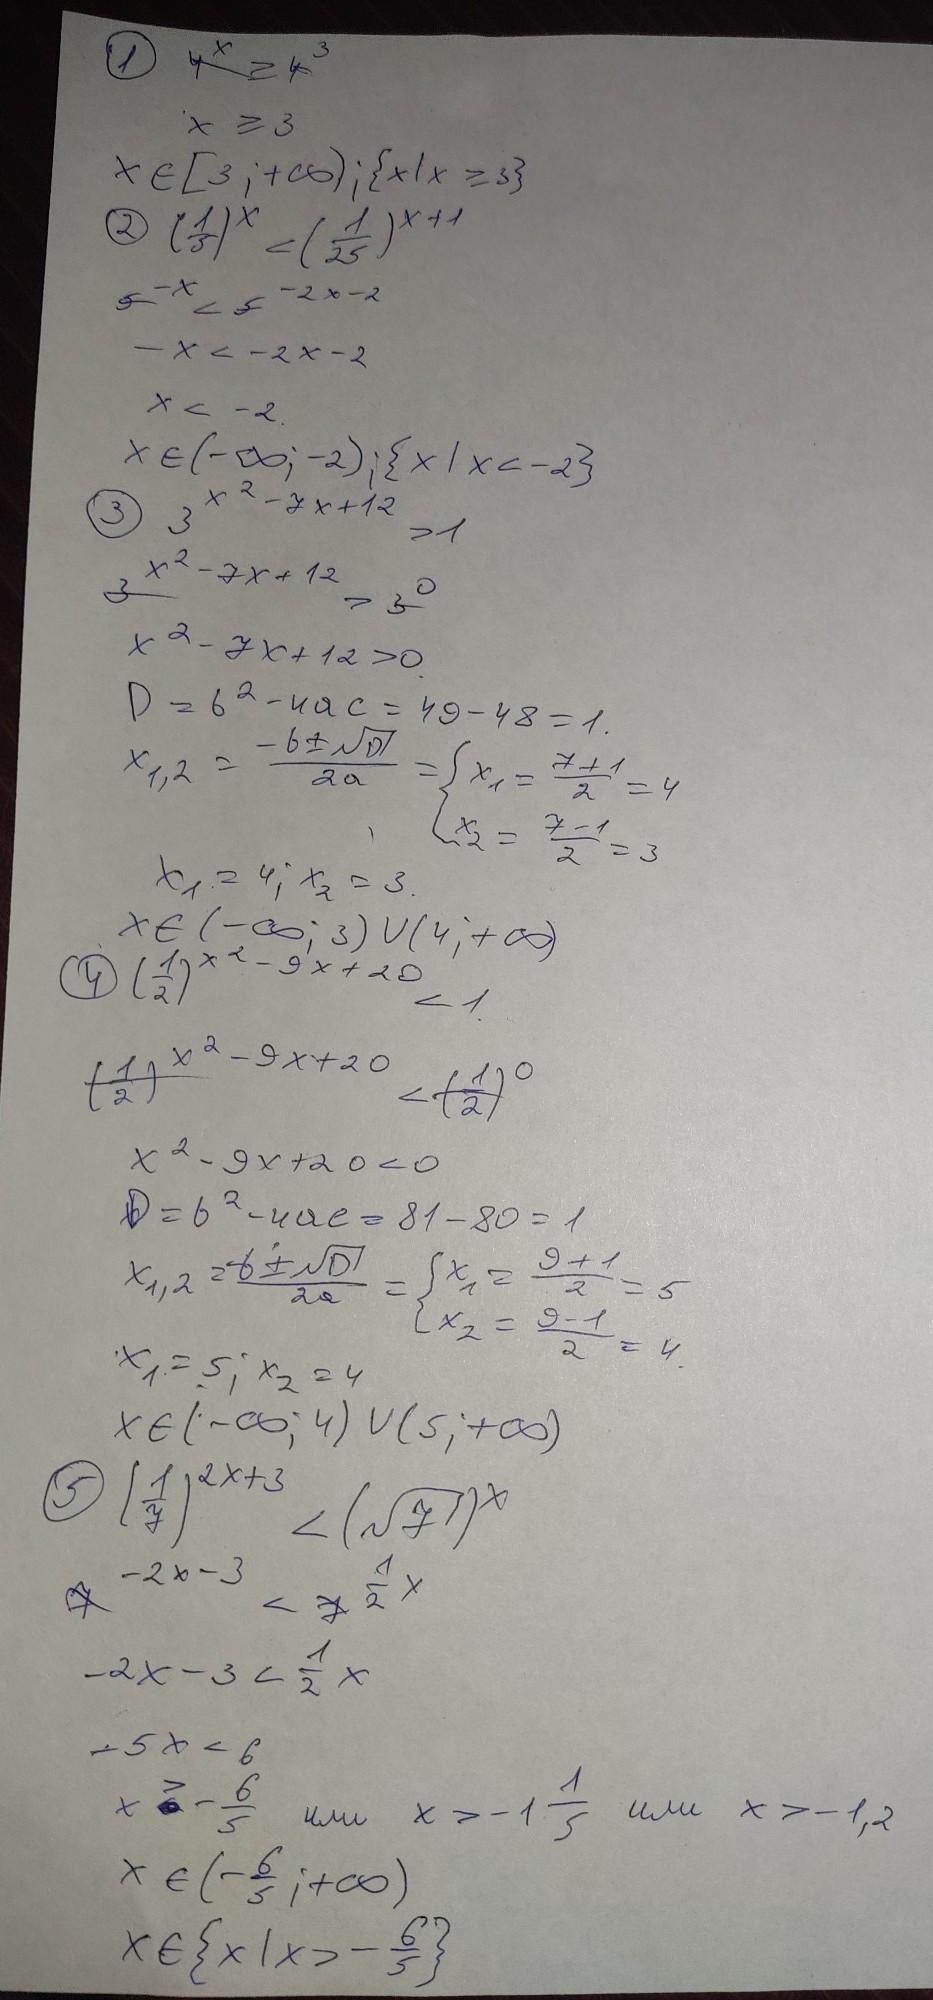 ① 4^x ≥ 4^3
x ≥ 3
x ∈ [3; +∞); {x | x ≥ 3}
② (1/5)^x < (1/25)^(x+1)
5^(-x) < 5^(-2x-2)
-x < -2x-2
x < -2.
x ∈ (-∞; -2); {x | x < -2}
③ 3^(x²-7x+12) > 1
3^(x²-7x+12) > 3^0
x²-7x+12 > 0.
D = b²-4ac = 49-48 = 1.
x₁,₂ = (-b±√D)/2a = { x₁ = (7+1)/2 = 4
x₂ = (7-1)/2 = 3
x₁ = 4; x₂ = 3.
x ∈ (-∞; 3) ∪ (4; +∞)
④ (1/2)^(x²-9x+20) < 1.
(1/2)^(x²-9x+20) < (1/2)^0
x²-9x+20 < 0
D = b²-4ac = 81-80 = 1
x₁,₂ = (-b±√D)/2a = { x₁ = (9+1)/2 = 5
x₂ = (9-1)/2 = 4.
x₁ = 5; x₂ = 4
x ∈ (-∞; 4) ∪ (5; +∞)
⑤ (1/7)^(2x+3) < (√7)^x
7^(-2x-3) < 7^(1/2 x)
-2x-3 < 1/2 x
-5x < 6
x > -6/5 или x > -1 1/5 или x > -1,2
x ∈ (-6/5; +∞)
x ∈ {x | x > -6/5}